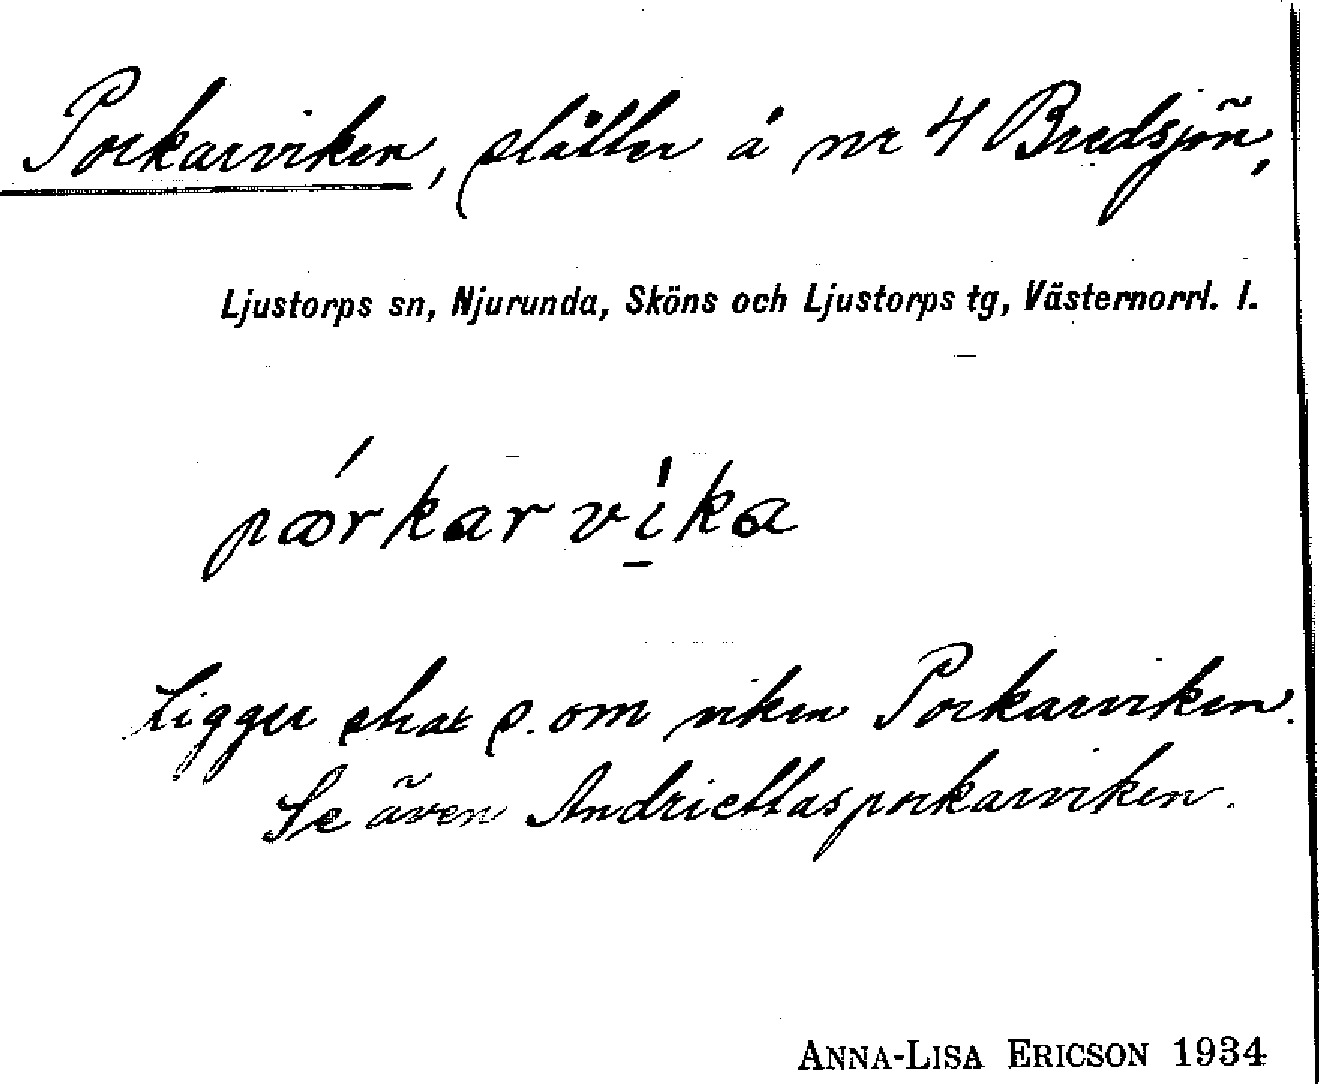 Porkarviken, slåtter å nr 4 Bredsjön,
Ljustorps sn, Njurunda, Sköns och Ljustorps tg, Västernorrl. l.
pærkarvika
Ligger strax s. om viken Porkarviken.
Se även Andriettasporkarviken.
ANNA-LISA ERICSON 1934